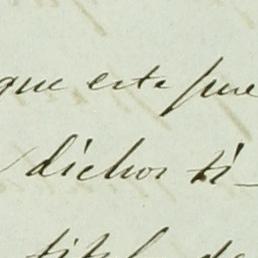 que esta pue
dichos ti-